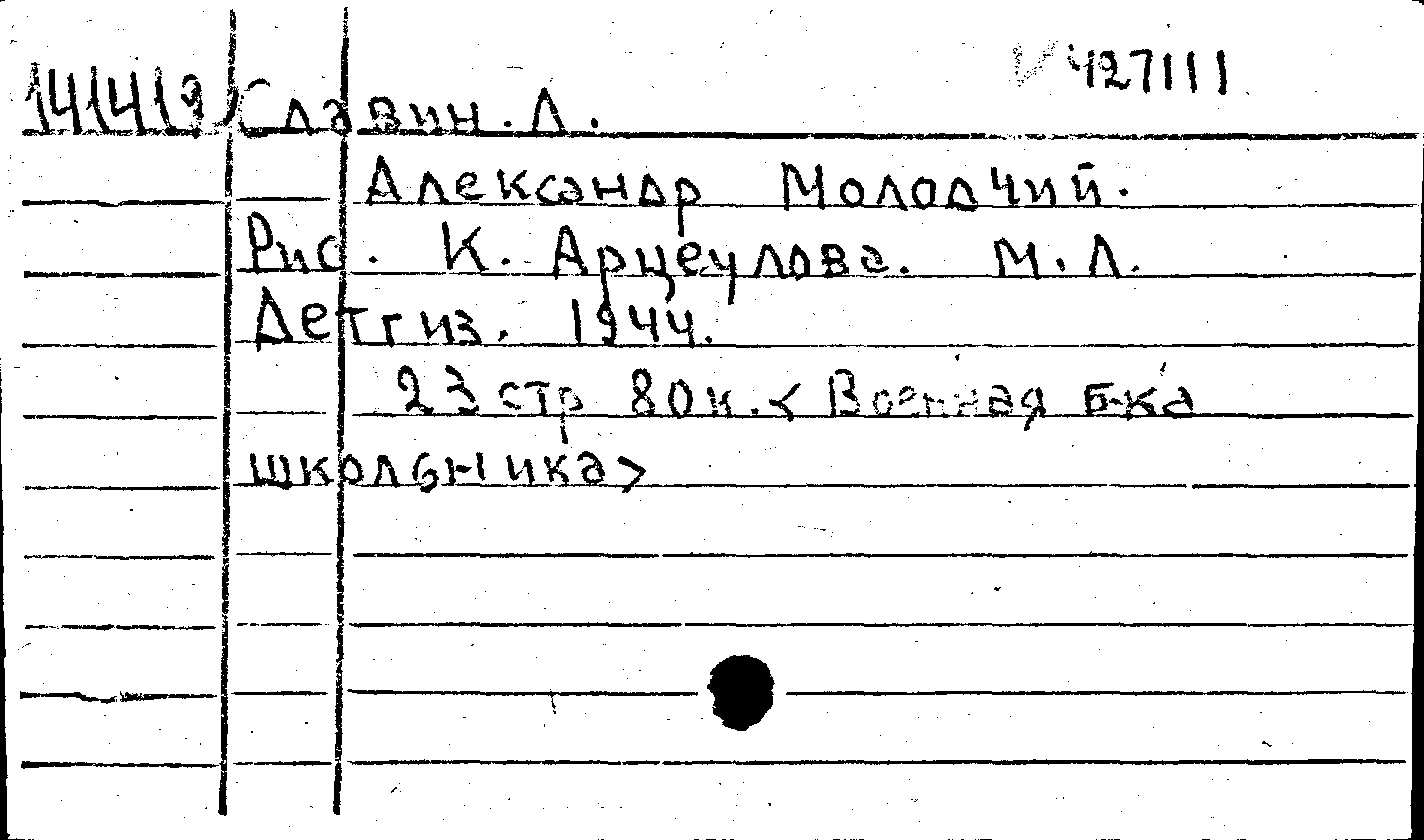 V 427111
141419 Славин. Л.
Александр Молодчий.
Рис. К. Арцеулова. М. Л.
Детгиз. 1944.
23 стр 80к. < Военная б-ка
школьника >